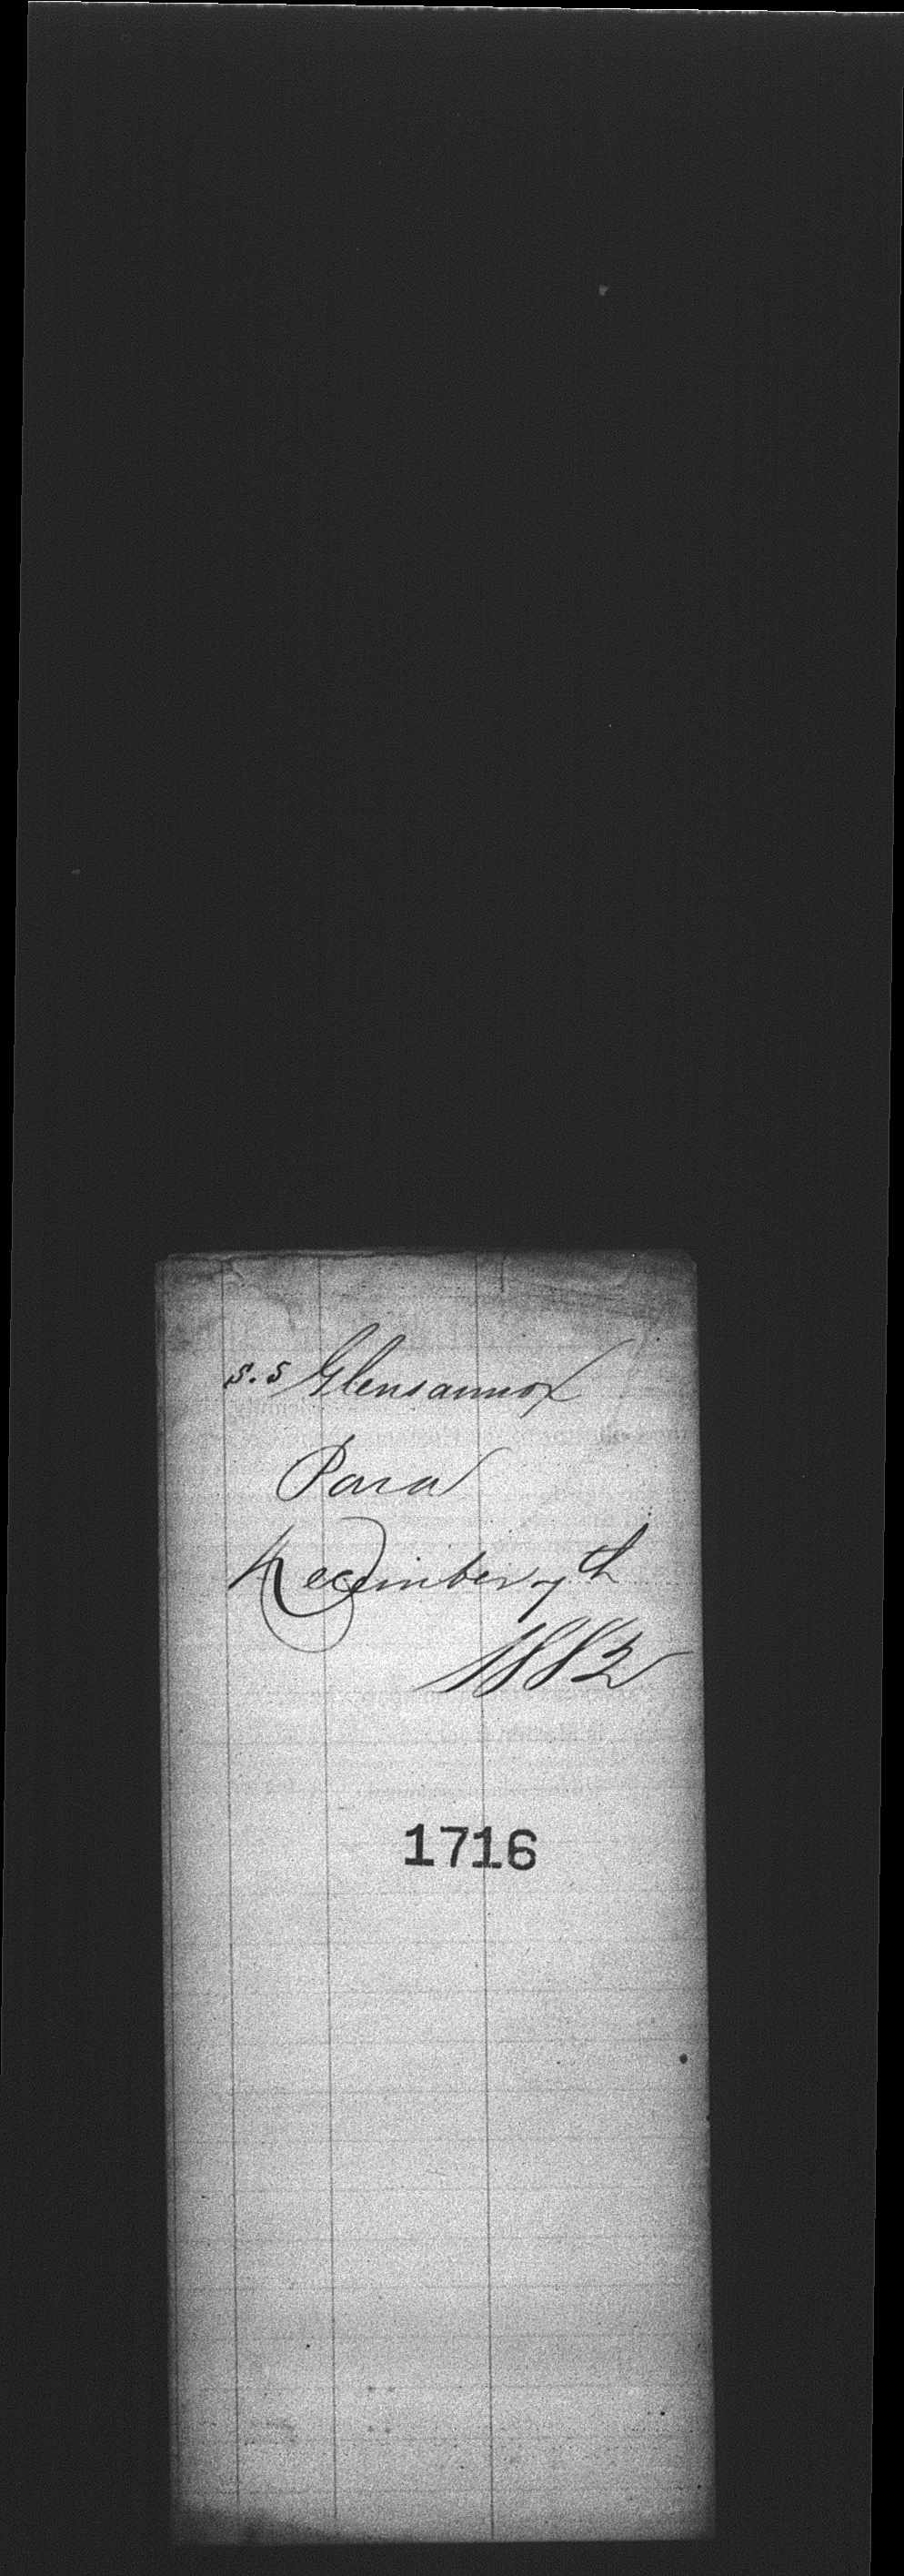 s.s Glensannox
Para
December 7th
1882
1716